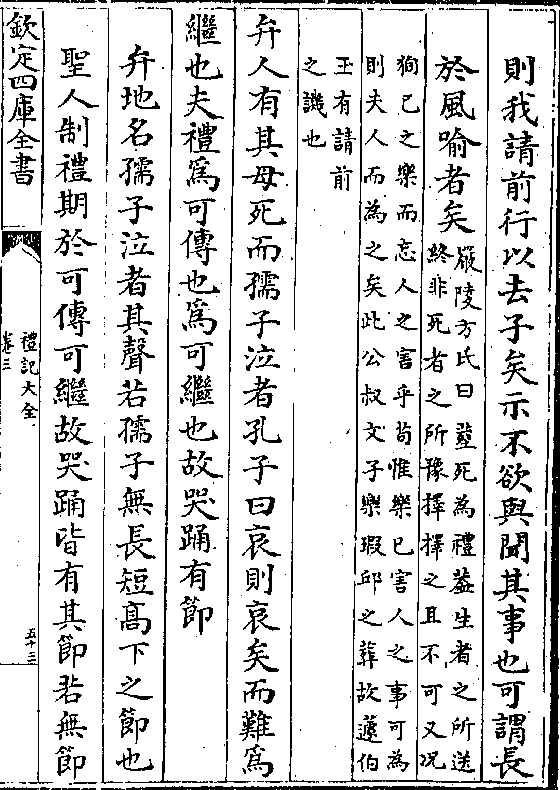 則我請前行以去子矣示不欲與聞其事也可謂長
於風喻者矣
嚴陵方氏曰葬死為禮葢生者之所送
終非死者之所豫擇擇之且不可又况
狥已之樂而忘人之害乎茍惟樂已害人之事可為
則夫人而為之矣此公叔文子樂瑕邱之葬故蘧伯
玉有請前
之譏也
弁人有其母死而孺子泣者孔子曰哀則哀矣而難為
繼也夫禮為可傳也為可繼也故哭踊有節
弁地名孺子泣者其聲若孺子無長短髙下之節也
聖人制禮期於可傳可繼故哭踊皆有其節若無節
欽定四庫全書
禮記大全
卷三
五十三